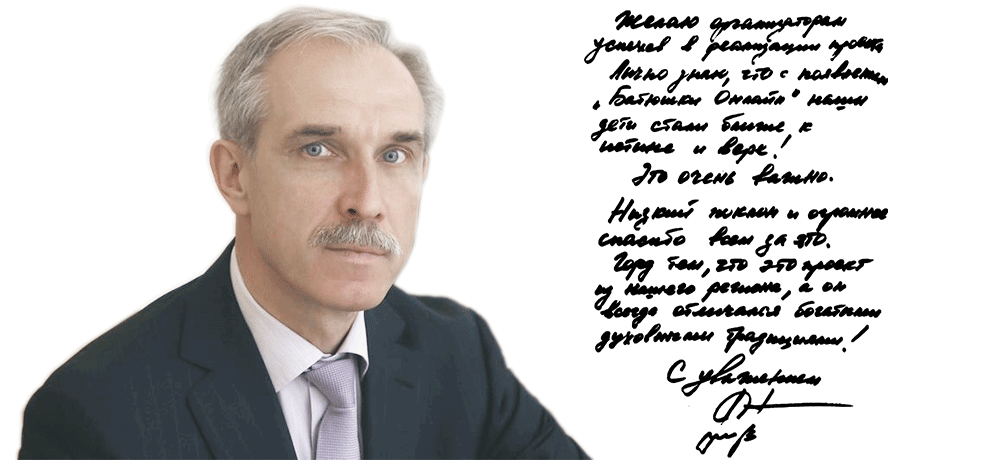 Желаю организаторам
успехов в реализации проекта
Лично знаю, что с появлением
„Батюшки Онлайн" наши
дети стали ближе к
истине и вере!
Это очень важно.
Низкий поклон и огромное
спасибо всем за это.
Горд тем, что это проект
из нашего региона, а он
всегда отличался богатыми
духовными традициями!
С уважением